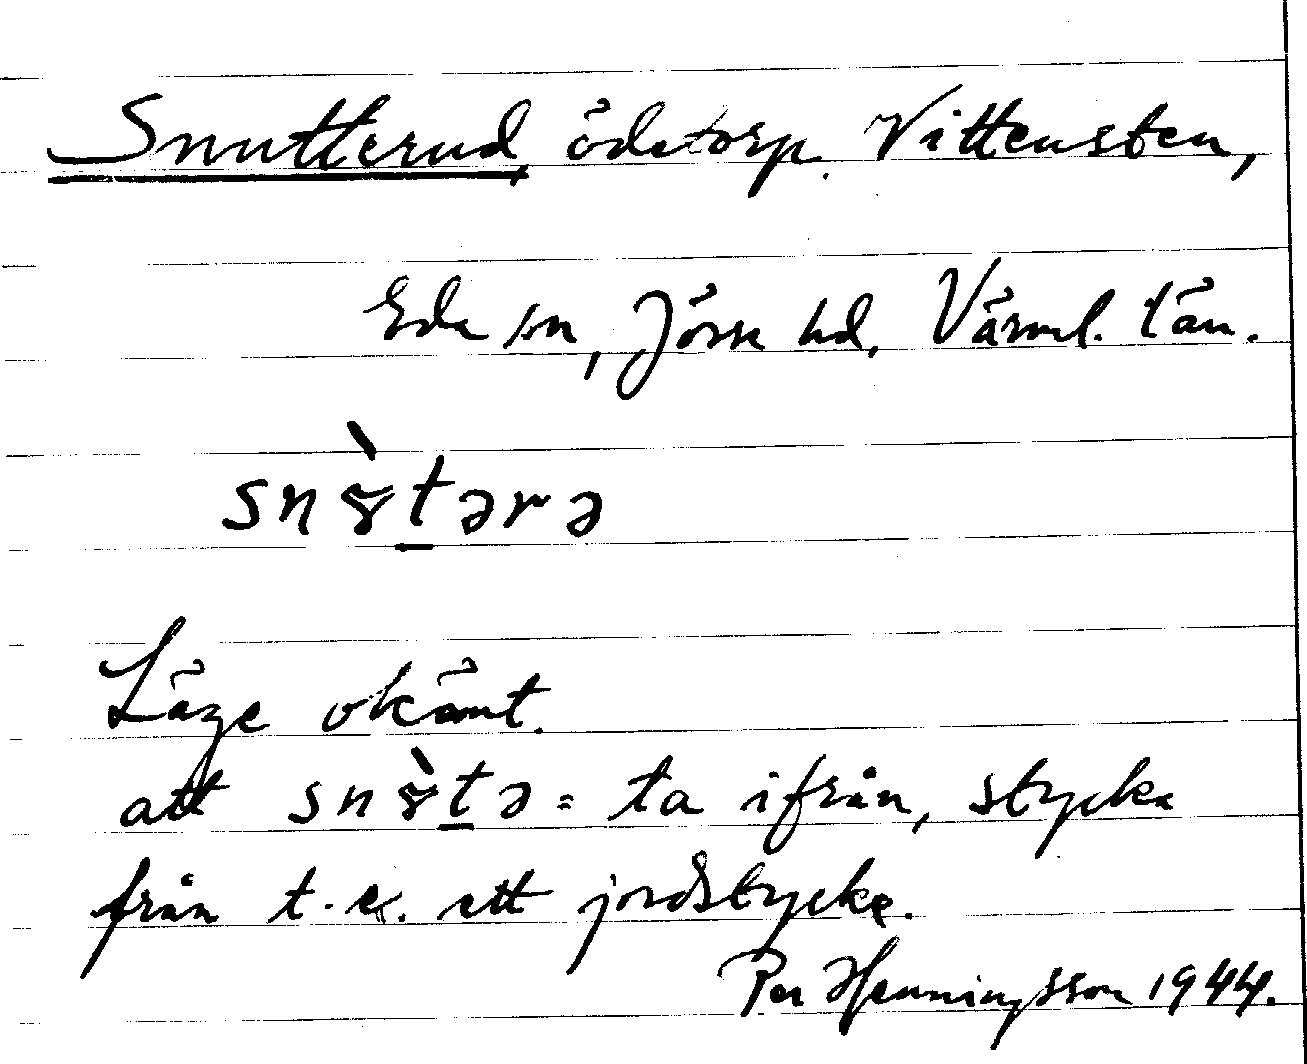 Snutterud, ödetorp. Vittensten,
Eda sn, Jösse hd, Värml. län.
snȣ̀t̲ərə
Läge okänt.
att snȣ̀t̲ə = ta ifrån, stycka
från t.ex. ett jordstycke.
Per Henningsson 1944.